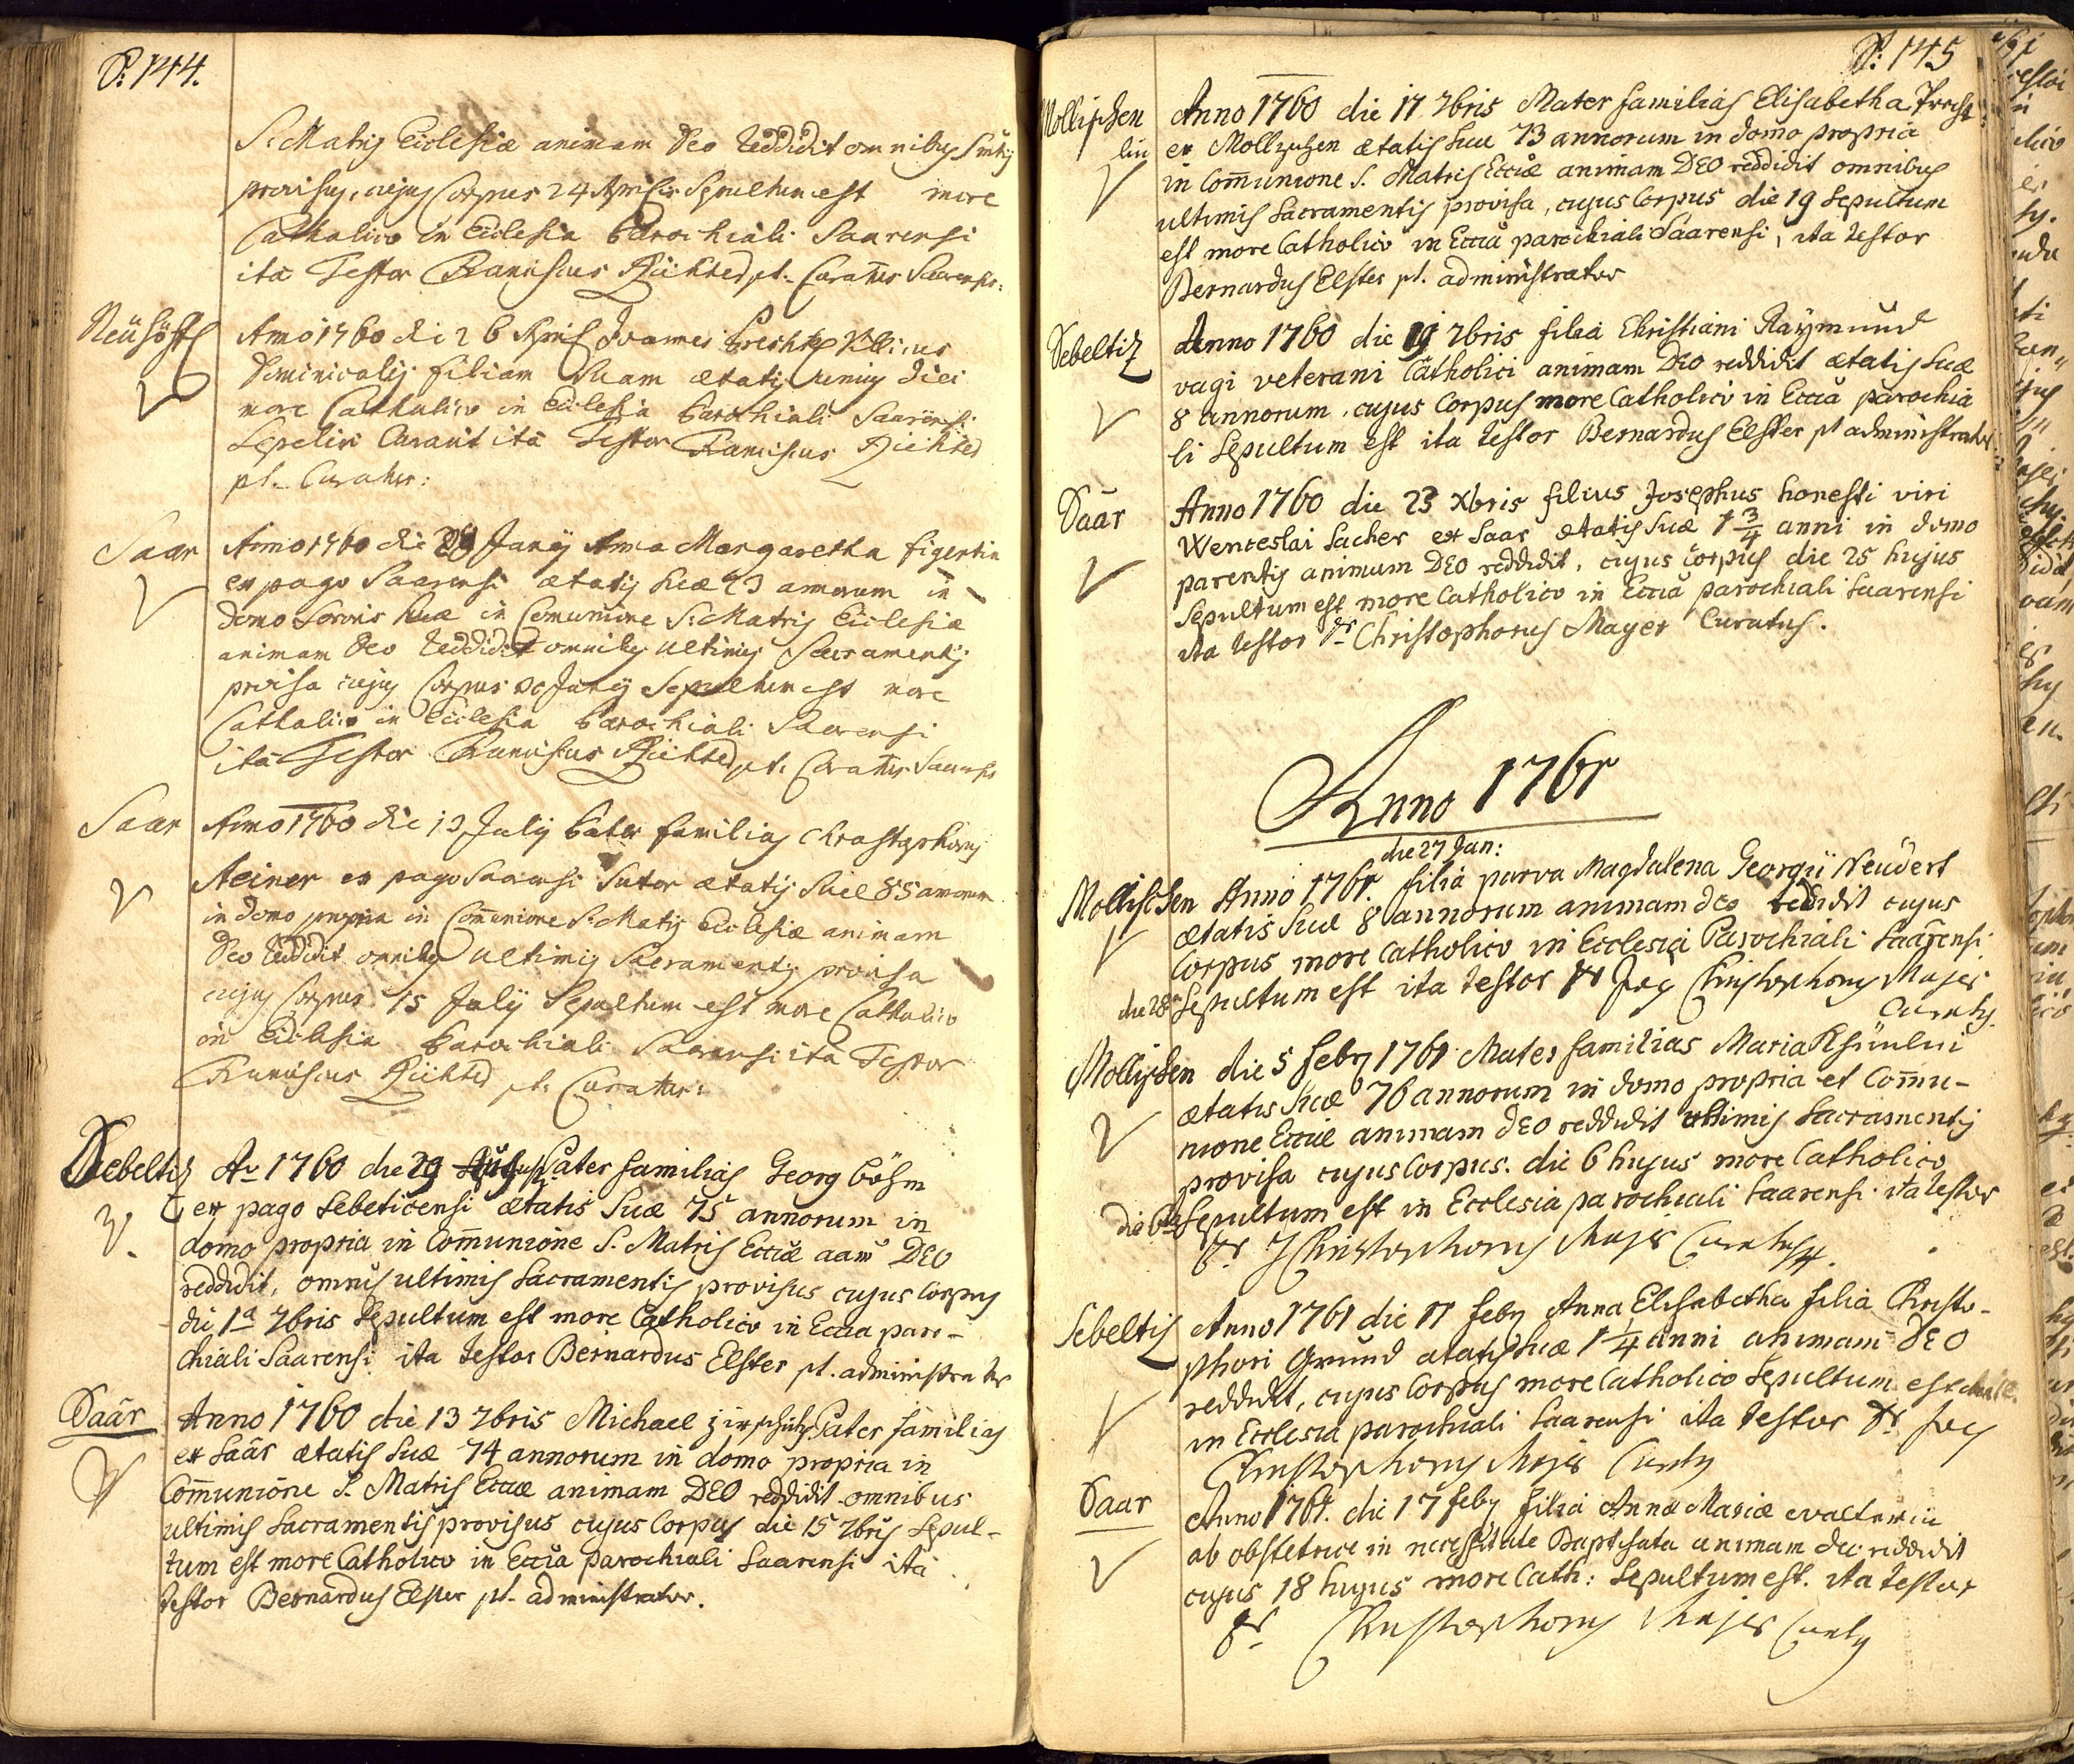 P: 144.
S. Matris Ecclesiæ animam Deo reddidit omnibus
provisus, cujus Corpus 24 Aprilis Sepultum est more
Catholico in Ecclesia Parochiali Saarensi
ita Testor Franciscus Richter pt. Curatus Saarensis.
Neühöffl
Anno 1760 die 26 April Joannes Villicus
Dominicalis filiam Suam ætatis unius diei
more Catholico in Ecclesia Parochiali Saarensi
Sepeliri Curavit ita Testor Franciscus Richter
pt. Curatus:
Saar
Anno 1760 die Junÿ Anna Margaretha
ex pago Saarensi ætatis suæ annorum in
domo Sororis suæ in Comunione S. Matris Ecclesiæ
animam Deo reddidit omnibus ultimis Sacramentis
provisa cujus Corpus 30 Junÿ Sepultum est more
Catholico in Ecclesia Parochiali Saarensi
ita Testor Franciscus Richter pt. Curatus Saarensis
Saar
Anno 1760 die 13 Julÿ Pater familias Christophorus
Steiner ex pago Saarensi Sutor ætatis Suæ 85 annorum
in domo propria in Communione S. Matris Ecclesiæ animam
Deo reddidit omnibus ultimis Sacramentis provisa
cujus Corpus 15 Julÿ Sepultum est more Catholico
in Ecclesia Parochiali Saarensi ita Testor
Franciscus Richter pt. Curatus:
Sebeltiz
Ao 1760 die 29 Pater familias Georg Böhm
ex pago Sebeticensi ætatis Suæ 75 annorum in
domo propria in Communione S. Matris Ecciæ aam DEO
reddidit, omnis ultimis Sacramentis provisus cujus Corpus
die 1a 7bris Sepultum est more Catholico in Eccia paro-
chiali Saarensi ita testor Bernardus Elster pt. administrator
Saär
Anno 1760 die 13 7bris Michael Pater familias
ex Saär ætatis Suæ 74 annorum in domo propria in
Communione S. Matris Ecciæ animam DEO reddidit omnibus
ultimis Sacramentis provisus cujus Corpus die 15 7bris Sepul-
tum est more Catholico in Eccia parochiali Saarensi ita
testor Bernardus Elster pt. administrator.
P: 145
Mollischen
Anno 1760 die 17 7bris Mater familias Elisabetha
lin
ex Mollischen ætatis Suæ 73 annorum in domo propria
in Communione S. Matris Ecciæ animam DEO reddidit omnibus
ultimis Sacramentis provisa, cujus Corpus die 19 Sepultum
est more Catholico in Eccia parochiali Saarensi, ita testor
Bernardus Elster pt. administrator
Sebeltiz
Anno 1760 die 19 7bris filia Christiani Raÿmund
vagi veterani Catholici animam DEO reddidit ætatis Suæ
8 annorum, cujus Corpus more Catholico in Eccia parochia
li Sepultum est ita testor Bernardus Elster pt administrator
Saär
Anno 1760 die 23 Xbris filius Josephus honesti viri
Wenceslai Sacher ex Saar ætatis Suæ 1 3/4 anni in domo
parentis animam DEO reddidit, cujus Corpus die 25 hujus
Sepultum est more Catholico in Eccia parochiali Saarensi
ita testor Fr Christophorus Mayer Curatus.
Anno 1761
die 27 Jan:
Mollischen
Anno 1761. filia parva Magdalena Georgii Neudert
ætatis Suæ 8 annorum animam deo reddidit cujus
Corpus more Catholico in Ecclesia Parochiali Saärensi
die 28
Sepultum est ita testor Fr Jos Christophorus Majer
Curatus.
Mollischen
die 5 Febr 1761 Mater familias Maria
ætatis Suæ 76 annorum in domo propria et Commu-
nione Ecciæ animam dEO reddidit ultimis Sacramentis
provisa cujus Corpus. die 6 hujus more Catholico
die 6
Sepultum est in Ecclesia parochiali Saarensi ita testor
Fr. J Christophorus Majer Curatus.
Sebeltis
Anno 1761 die 11 Febr Anna Elisabetha filia Christo-
phori Grund ætatis suæ 1 1/4 anni animam dEO
reddidit, cujus Corpus more Catholico Sepultum est
in Ecclesia parochiali Saarensi ita testor Fr Jos
Christophorus Majer Curatus
Saar
Anno 1761. die 17 Febr filia Annæ Mariæ
ab obstetrice in necessitate Baptisata animam deo reddidit
cujus 18 hujus more Cath: Sepultum est. ita testor
Fr Christophorus Majer Curatus